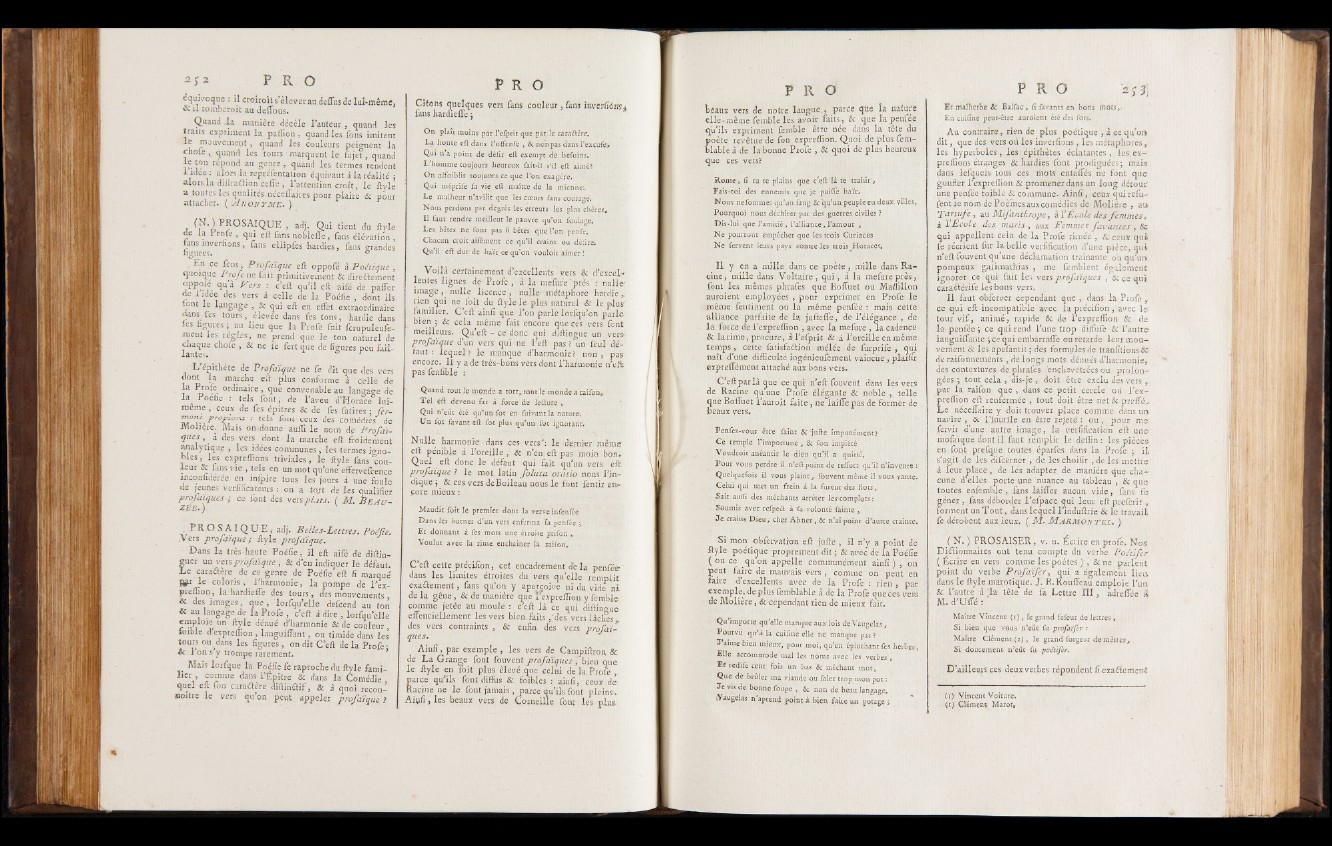 252 PRO
équivoque : il croiroit s'élever au deſſus de lui-même,
& il tomberoit au deſſous.
Quand la manière décèle l'auteur, quand les
traits expriment la paſſion, quand les ſons imitent
le mouvement, quand les couleurs peignent la
choſe, quand les tours marquent le ſujet, quand
le ton répond au genre, quand les termes rendent
l'idée : alors la repréſentation équivaut à la réalité ;
alors la diſtraction ceſſe, l'attention croît, le ſtyle
a toutes les qualités néceſſaires pour plaire & pour
attacher. (ANONYME.)
(N.) PROSAÏQUE, adj. Qui tient du ſtyle
de la Proſe, qui eſt ſans nobleſſe, ſans élévation,
ſans inverſions, ſans ellipſes hardies, ſans grandes
figures.
En ce ſens, Proſaïque eſt oppoſé à Poétique,
quoique Proſe ne ſoit primitivement & directement
oppoſé qu'à Vers : c'eſt qu'il eſt aiſé de paſſer
de l'idée des vers à celle de la Poéſie, dont ils
ſont le langage, & qui eſt en effet extraordinaire
dans ſes tours, élevée dans ſes tons, hardie dans
ſes figures ; au lieu que la Proſe ſuit ſcrupuleuſe-
ment les règles, ne prend que le ton naturel de
chaque choſe, & ne ſe ſert que de figures peu ſail-
lantes.
L'épithète de Proſaïque ne ſe dit que des vers
dont la marche eſt plus conforme à celle de
la Proſe ordinaire, que convenable au langage de
la Poéſie : tels ſont, de l'aveu d'Horace lui-
même, ceux de ſes épîtres & de ſes ſatires ; ſer-
moni propiora : tels ſont ceux des comédies de
Molière. Mais on donne auſſi le nom de Proſaï-
ques, à des vers dont la marche eſt froidement
analytique, les idées communes, les termes igno-
bles, les expreſſions triviales, le ſtyle ſans cou-
leur & ſans vie, tels en un mot qu'une efferveſcence
inconſidérée en inſpire tous les jours à une foule
de jeunes verſificateurs : on a tort de les qualifier
proſaïques ; ce ſont des vers plats. (M. BEAU-
ZÉE.)
PROSAIQUE, adj. Belles-Lettres. Poéſie.
Vers proſaïque ; ſtyle proſaïque.
Dans la très-haute Poéſie, il eſt aiſé de diſtin-
guer un vers proſaïque, & d'en indiquer le défaut.
Le caractère de ce genre de Poéſie eſt ſi marqué
par le coloris, l'harmonie, la pompe de l'ex-
preſſion, la hardieſſe des tours, des mouvements,
& des images, que, lorſqu'elle deſcend au ton
& au langage de la Proſe, c'eſt à dire, lorſqu'elle
emploie un ſtyle dénué d'harmonie & de couleur,
foible d'expreſſion, languiſſant, ou timide dans les
tours ou dans les figures, on dit C'eſt de la Proſe ;
& l'on s'y trompe rarement.
Mais lorſque la Poéſie ſe raproche du ſtyle fami-
lier, comme dans l'Épître & dans la Comédie,
quel eſt ſon caractère diſtinctif, & à quoi recon-
noître le vers qu'on peut appeler proſaïque ?
PRO
Citons quelques vers ſans couleur, ſans inverſions,
ſans hardieſſe ;
On plaît moins par l'eſprit que par le caractère.
La honte eſt dans l'offenſe, & non pas dans l'excuſe.
Qui n'a point de deſir eſt exempt de beſoins.
L'homme toujours heureux ſait-il s'il eſt aimé ?
On affoiblit toujours ce que l'on exagère.
Qui mépriſe ſa vie eſt maître de la mienne.
Le malheur n'avilit que les cœurs ſans courage.
Nous perdons par degrés les erreurs les plus chères.
Il faut rendre meilleur le pauvre qu'on ſoulage.
Les bêtes ne ſont pas ſi bêtes que l'on penſe.
Chacun croit aiſément ce qu'il craint ou deſire.
Qu'il eſt dur de haïr ce qu'on vouloit aimer !
Voilà certainement d'excellents vers & d'excel-
lentes lignes de Proſe, à la meſure près : nulle
image, nulle licence, nulle métaphore hardie,
rien qui ne ſoit du ſtyle le plus naturel & le plus
familier. C'eſt ainſi que l'on parle lorſqu'on parle
bien ; & cela même fait encore que ces vers ſont
meilleurs. Qu'eſt-ce donc qui diſtingue un vers
proſaïque d'un vers qui ne l'eſt pas ? un ſeul dé-
faut : lequel ? le manque d'harmonie ? non, pas
encore. Il y a de très-bons vers dont l'harmonie n'eſt
pas ſenſible :
Quand tout le monde a tort, tout le monde a raiſon.
Tel eſt devenu fat à force de lecture,
Qui n'eût été qu'un ſot en ſuivant la nature.
Un ſot ſavant eſt ſot plus qu'un ſot ignorant.
Nulle harmonie dans ces vers : le dernier même
eſt pénible à l'oreille, & n'en eſt pas moin bon.
Quel eſt donc le défaut qui fait qu'un vers eſt
proſaïque ? le mot latin ſoluta oratio nous l'in-
dique ; & ces vers de Boileau nous le font ſentir en-
core mieux :
Maudit ſoit le premier dont la verve inſenſée
Dans les bornes d'un vers enferma ſa penſée ;
Et donnant à ſes mots une étroite priſon,
Voulut avec la rime enchaîner la raiſon.
C'eſt cette préciſion, cet encadrement de la penſée
dans les limites étroites du vers qu'elle remplit
exactement, ſans qu'on y aperçoive ni du vide ni
de la gêne, & de manière que l'expreſſion y ſemble
comme jetée au moule : c'eſt là ce qui diſtingue
eſſenciellement les vers bien faits, des vers lâches,
des vers contraints, & enfin des vers proſaï-
ques.
Ainſi, par exemple, les vers de Campiſtron &
de La Grange ſont ſouvent proſaïques, bien que
le ſtyle en ſoit plus élevé que celui de la Proſe,
parce qu'ils ſont diffus & foibles : ainſi, ceux de
Racine ne le ſont jamais, parce qu'ils ſont pleins.
Ainſi, les beaux vers de Corneille ſont les plus
PRO
beaux vers de notre langue, parce que la nature
elle-même ſemble les avoir faits, & que la penſée
qu'ils expriment ſemble être née dans la tête du
poète revêtue de ſon expreſſion. Quoi de plus ſem-
blable à de la bonne Proſe, & quoi de plus heureux
que ces vers ?
Rome, ſi tu te plains que c'eſt là te trahir,
Fais-toi des ennemis que je puiſſe haïr.
Nous ne ſommes qu'un ſang & qu'un peuple en deux villes,
Pourquoi nous déchirer par des guerres civiles ?
Dis-lui que l'amitié, l'alliance, l'amour,
Ne pourront empêcher que les trois Curiaces
Ne ſervent leurs pays contre les trois Horaces.
Il y en a mille dans ce poète, mille dans Ra-
cine, mille dans Voltaire, qui, à la meſure près,
ſont les mêmes phraſes que Boſſuet ou Maſſillon
auroient employées, pour exprimer en Proſe le
même ſentiment ou la même penſée : mais cette
alliance parfaite de la juſteſſe, de l'élégance, de
la force de l'expreſſion, avec la meſure, la cadence
& la rime, procure, à l'eſprit & à l'oreille en même
temps, cette ſatisfaction mêlée de ſurpriſe, qui
naît d'une difficulté ingénieuſement vaincue, plaiſir
expreſſément attaché aux bons vers.
C'eſt par là que ce qui n'eſt ſouvent dans les vers
de Racine qu'une Proſe élégante & noble, telle
que Boſſuet l'auroit faite, ne laiſſe pas de former de
beaux vers.
Penſez-vous être ſaint & juſte impunément ?
Ce temple l'importune, & ſon impiété
Voudroit anéantir le dieu qu'il a quitté.
Pour vous perdre il n'eſt point de reſſort qu'il n'invente :
Quelquefois il vous plaint, ſouvent même il vous vante.
Celui qui met un frein à la fureur des flots,
Sait auſſi des méchants arrêter les complots :
Soumis avec reſpect à ſa volonté ſainte,
Je crains Dieu, cher Abner, & n'ai point d'autre crainte.
Si mon obſervation eſt juſte, il n'y a point de
ſtyle poétique proprement dit ; & avec de la Poéſie
(ou ce qu'on appelle communément ainſi), on
peut faire de mauvais vers, comme on peut en
faire d'excellents avec de la Proſe : rien, par
exemple, de plus ſemblable à de la Proſe que ces vers
de Molière, & cependant rien de mieux fait.
Qu'importe qu'elle manque aux lois de Vaugelas,
Pourvu qu'à la cuiſine elle ne manque pas ?
J'aime bien mieux, pour moi, qu'en épluchant ſes herbes,
Elle accommode mal les noms avec les verbes,
Et rediſe cent fois un bas & méchant mot,
Que de brûler ma viande ou ſaler trop mon pot :
Je vis de bonne ſoupe, & non de beau langage,
Vaugelas n'aprend point à bien faire un potage ;
PRO 253
Et malherbe & Balſac, ſi ſavants en bons mots,
En cuiſine peut-être auroient été des ſots.
Au contraire, rien de plus poétique, à ce qu'on
dit, que des vers où les inverſions, les métaphores,
les hyperboles, les épithètes éclatantes, les ex-
preſſions étranges & hardies ſont prodiguées ; mais
dans leſquels tous ces mots entaſſés ne font que
gonfler l'expreſſion & promener dans un long détour
une penſée foible & commune. Ainſi, ceux qui refu-
ſent le nom de Poèmes aux comédies de Molière, au
Tartufe, au Miſanthrope, à l'École des femmes,
à l'École des maris, aux Femmes ſavantes, &
qui appellent cela de la Proſe rimée, & ceux qui
ſe récrient ſur la belle verſification d'une pièce, qui
n'eſt ſouvent qu'une déclamation traînante ou qu'un
pompeux galimathias, me ſemblent également
ignorer ce qui fait les vers proſaïques, & ce qui
caractériſe les bons vers.
Il faut obſerver cependant que, dans la Proſe,
ce qui eſt incompatible avec la préciſion, avec le
tour vif, animé, rapide & de l'expreſſion & de
la penſée ; ce qui rend l'une trop diffuſe & l'autre
languiſſante ; ce qui embarraſſe ou retarde leur mou-
vement & les apeſantit ; des formules de tranſitions &
de raiſonnements, de longs mots dénués d'harmonie,
des contextures de phraſes enchevêtrées ou prolon-
gées ; tout cela, dis-je, doit être exclu des vers,
par la raiſon que, dans ce petit cercle où l'ex-
preſſion eſt renfermée, tout doit être net & preſſé.
Le néceſſaire y doit trouver place comme dans un
navire, & l'inutile en être rejeté : ou, pour me
ſervir d'une autre image, la verſification eſt une
moſaïque dont il faut remplir le deſſin : les pièces
en ſont preſque toutes éparſes dans la Proſe ; il
s'agit de les diſcerner, de les choiſir, de les mettre
à leur place, de les adapter de manière que cha-
cune d'elles porte une nuance au tableau, & que
toutes enſemble, ſans laiſſer aucun vide, ſans ſe
gêner, ſans déborder l'eſpace qui leur eſt preſcrit,
forment un Tout, dans lequel l'induſtrie & le travail
ſe dérobent aux ieux. (M. MARMONTEL.)
(N.) PROSAISER, v. n. Écrire en proſe. Nos
Dictionnaires ont tenu compte du verbe Poétiſer
(Écrire en vers comme les poètes), & ne parlent
point du verbe Proſaiſer, qui a également lieu
dans le ſtyle marotique. J. B. Rouſſeau emploie l'un
& l'autre à la tête de ſa Lettre III, adreſſée à
M. d'Uſſé :
Maître Vincent (1), le grand feſeur de lettres,
Si bien que vous n'eût ſu proſaiſer :
Maître Clément (2), le grand forgeur de mètres,
Si doucement n'eût ſu poétiſer.
D'ailleurs ces deux verbes répondent ſi exactement
(1) Vincent Voiture.
(2) Clément Marot.